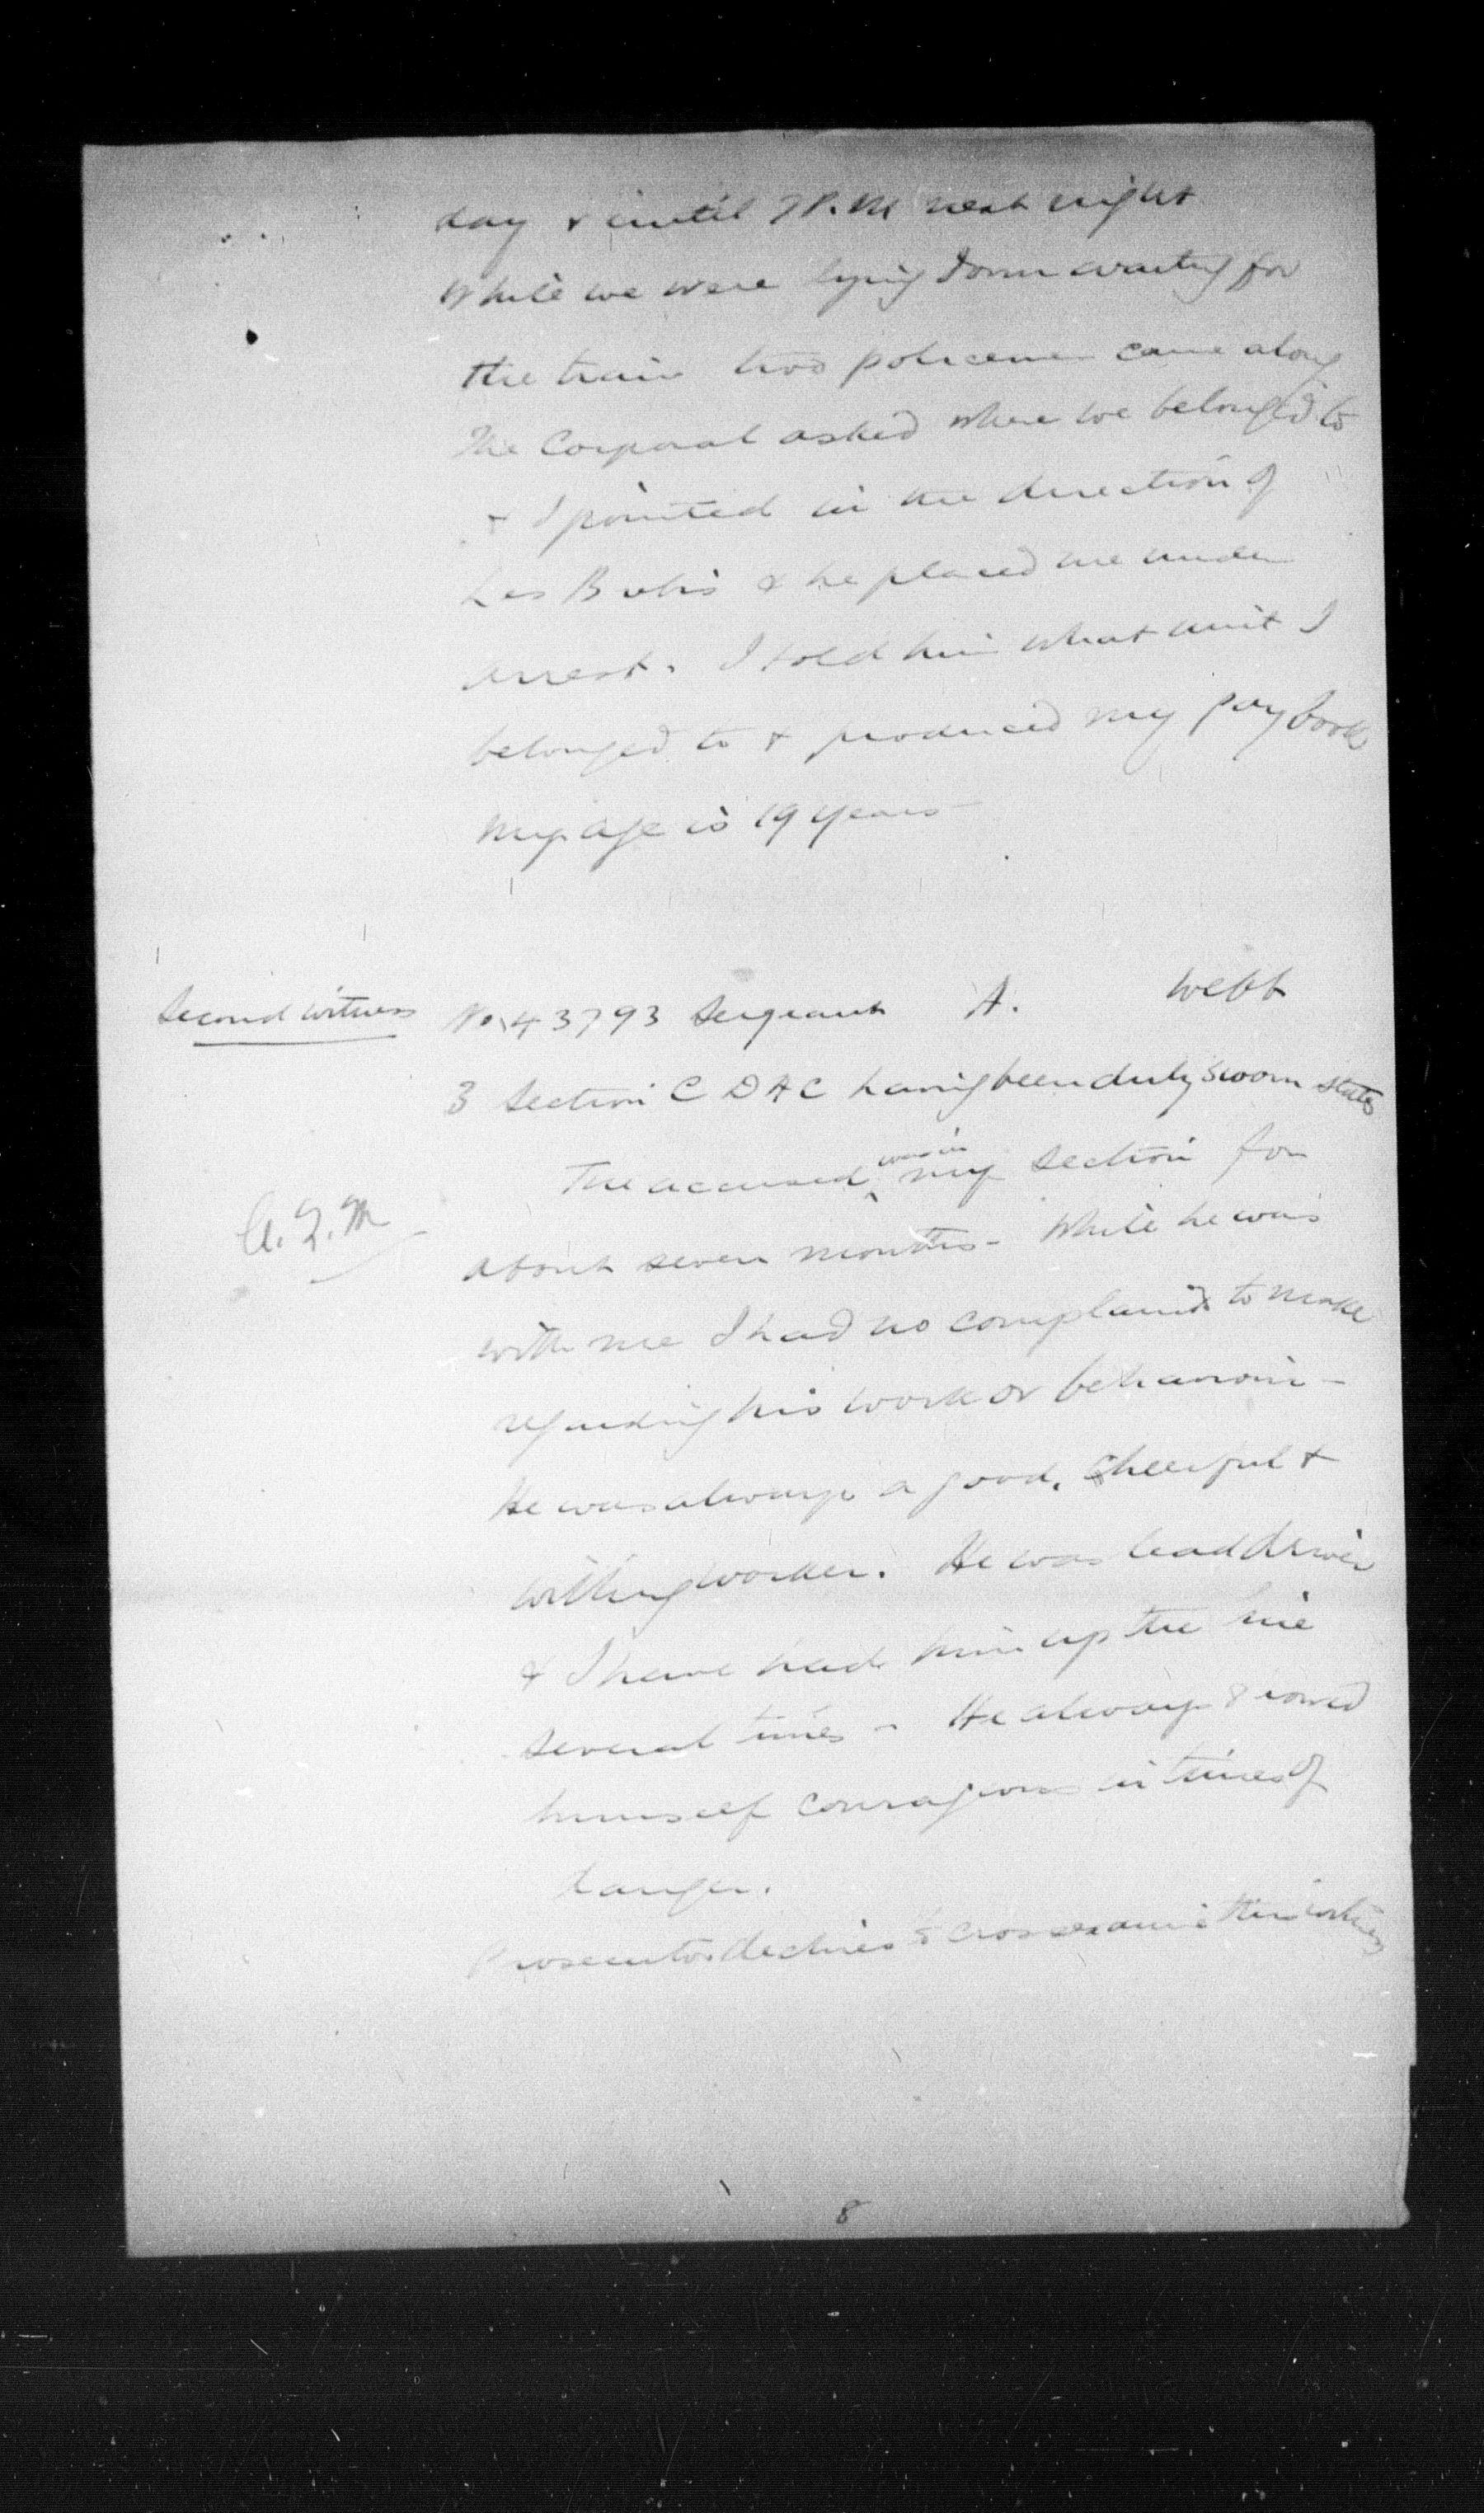 day & until 7P.M next night
While we were lying down waiting for
the train two policemen came along
The Corporal asked where we belonged to
& I pointed in the direction of
Les & he placed me under
arrest. I told him what unit I
belonged to & produced my paybook
My age is 19 years
Second witness No 43793 Sergeant A. Webb
3 Section C D A C having been duly sworn states
The accused was in my section for
about seven months - While he was
with me I had no complaints to make
regarding his work or behaviour -
He was always a good, cheerful &
willing worker. He was lead driver
& I have had him up the line
several times - He always showed
himself courageous in times of
danger.
Prosecutor declines to cross examine this witness
8